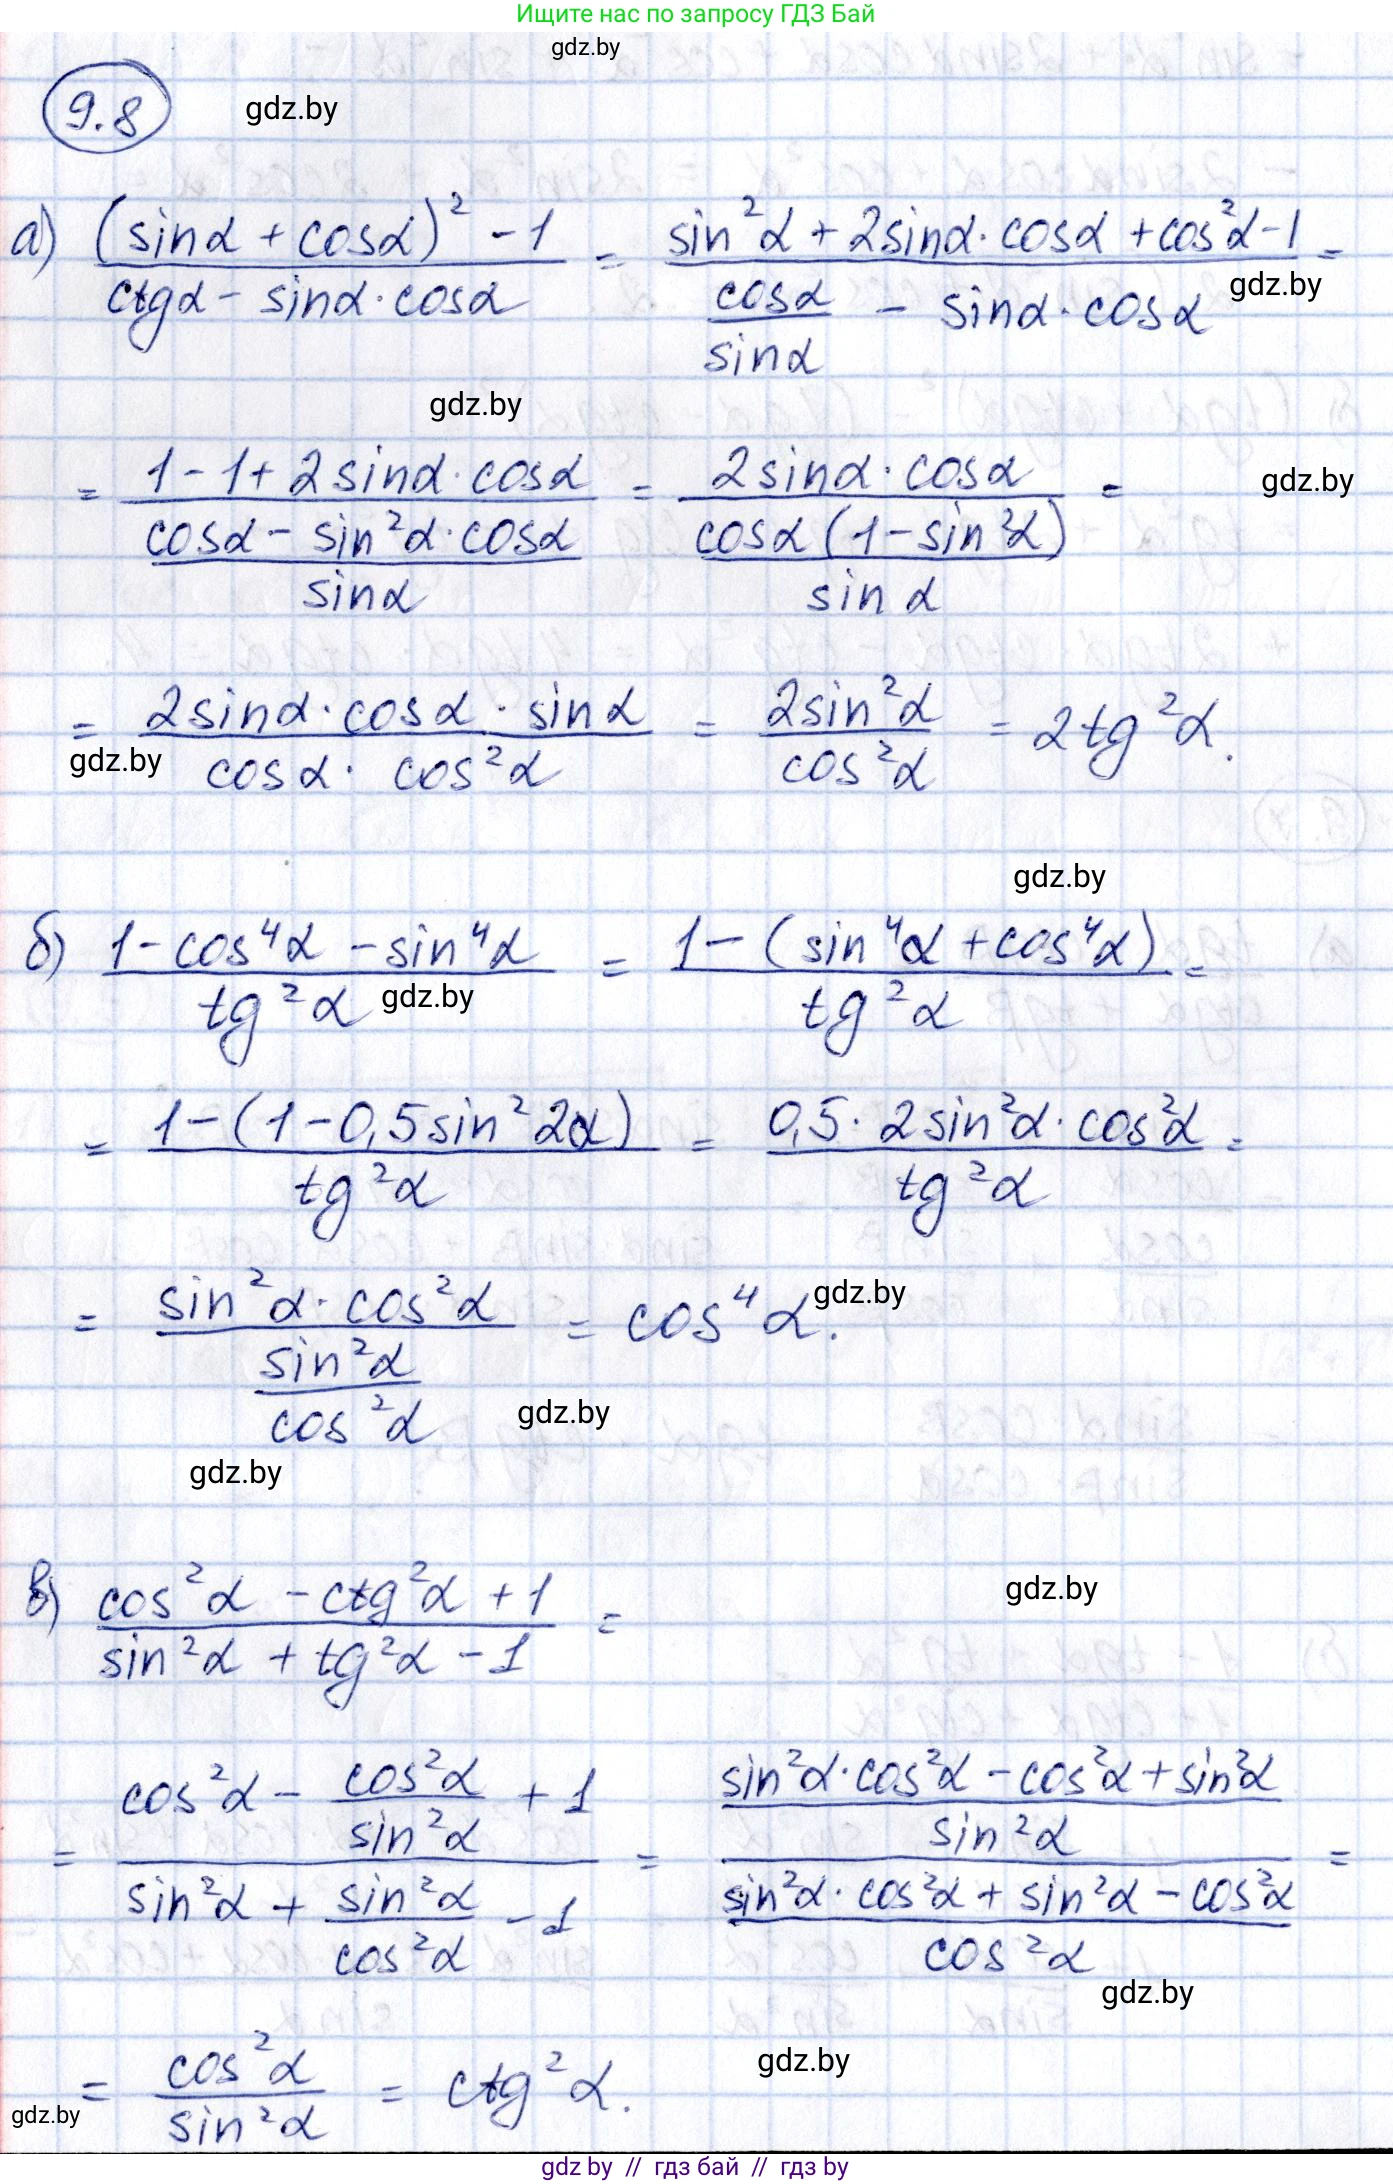 Ищите нас по запросу ГДЗ Бай
gdz.by
9.8 gdz.by
а) ((sinα + cosα)² - 1)/(ctgα - sinα·cosα) = (sin²α + 2sinα·cosα + cos²α - 1)/(cosα/sinα - sinα·cosα) =
gdz.by
gdz.by
= (1 - 1 + 2sinα·cosα)/((cosα - sin²α·cosα)/sinα) = (2sinα·cosα)/((cosα(1 - sin²α))/sinα) =
gdz.by
= (2sinα·cosα·sinα)/(cosα·cos²α) = 2sin²α/cos²α = 2tg²α.
gdz.by
gdz.by
б) (1 - cos⁴α - sin⁴α)/(tg²α) = (1 - (sin⁴α + cos⁴α))/(tg²α) =
gdz.by
= (1 - (1 - 0,5sin²2α))/(tg²α) = (0,5·2sin²α·cos²α)/(tg²α) =
= (sin²α·cos²α)/(sin²α/cos²α) = cos⁴α.
gdz.by
gdz.by
gdz.by
в) (cos²α - ctg²α + 1)/(sin²α + tg²α - 1) =
gdz.by
= (cos²α - cos²α/sin²α + 1)/(sin²α + sin²α/cos²α - 1) = ((sin²α·cos²α - cos²α + sin²α)/sin²α)/((sin²α·cos²α + sin²α - cos²α)/cos²α) =
gdz.by
= cos²α/sin²α = ctg²α.
gdz.by
gdz.by
gdz by // гдз бай // гдз by